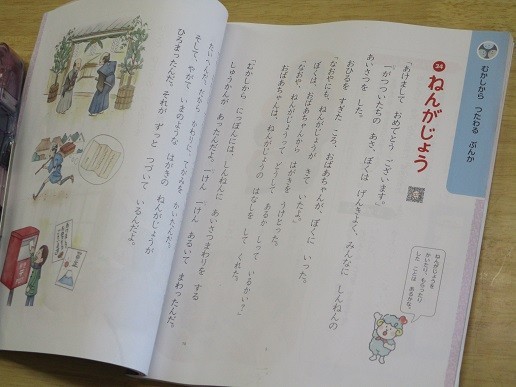 むかしから つたわる ぶんか
34 ねんがじょう
「あけまして おめでとう ございます。」
一がついたちの あさ、ぼくは げんきよく、みんなに しんねんの
あいさつを した。
おひるを すぎた ころ、おばあちゃんが、ぼくに いった。
「なおやにも、ねんがじょうが きて いたよ。」
ぼくは、おばあちゃんから はがきを うけとった。
「なおや、ねんがじょうって どうして あるか しって いるかい。」
おばあちゃんは、ねんがじょうの はなしを して くれた。
「むかしから、にっぽんには、しんねんに あいさつまわりを する
しゅうかんが あったんだよ。一けん 一けん あるいて まわったんだ。
かわりに てがみを かいたんだ。
そして、やがて いまのような はがきの ねんがじょうが
ひろまったんだ。それが ずっと つづいて いるんだよ。
ねんがじょうを
かいたり、もらったり
した ことは あるかな。